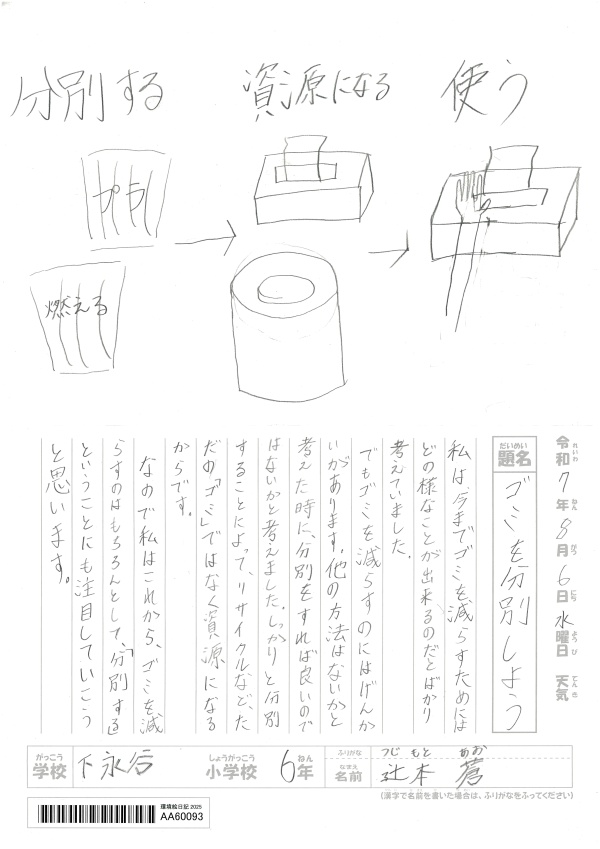 分別する
資源になる
使う
プラ
燃える
令和7年8月6日水曜日 天気
れいわ ねん がつ にち ようび てんき
だいめい
題名
ゴミを分別しよう
私は、今までゴミを減らすためには
どの様なことが出来るのだとばかり
考えていました。
でもゴミを減らすのにはげんか
いがあります。他の方法はないかと
考えた時に、分別をすれば良いので
はないかと考えました。しっかりと分別
することによって、リサイクルなど、た
だの「ゴミ」ではなく資源になる
からです。
なので私はこれから、ゴミを減
らすのはもちろんとして、「分別する」
ということにも注目していこう
と思います。
がっこう
学校
下永谷
しょうがっこう
小学校
6年
ねん
ふりがな
つじ もと あお
なまえ
名前
辻本 蒼
(漢字で名前を書いた場合は、ふりがなをふってください)
環境絵日記 2025
AA60093